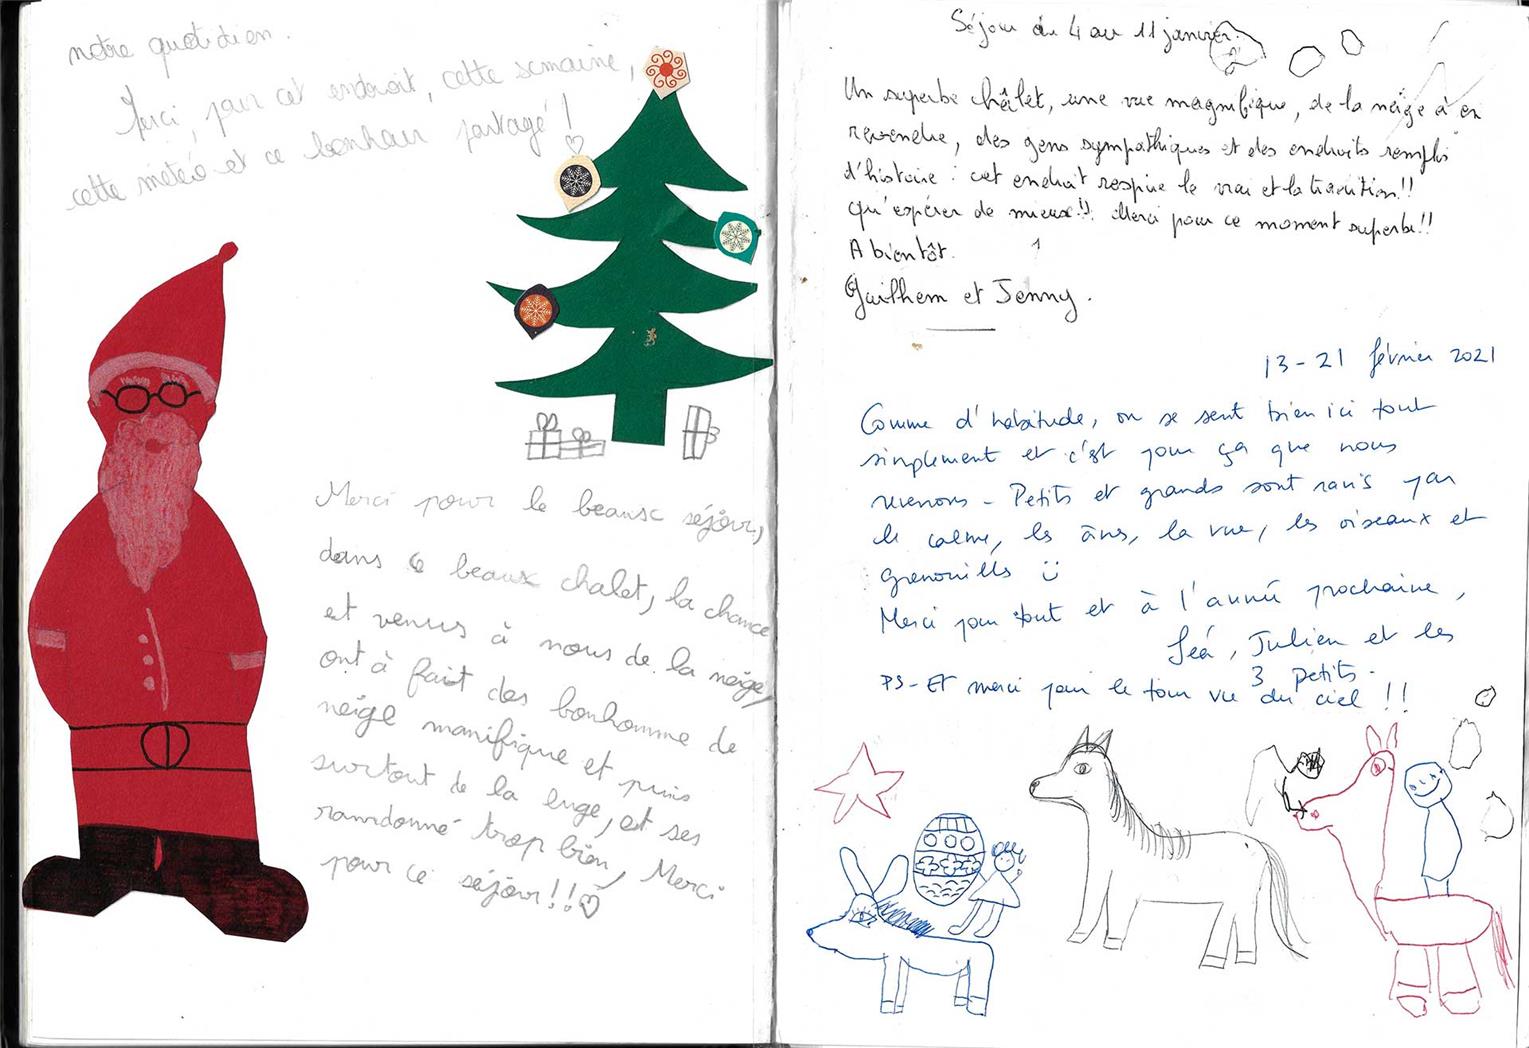 notre quotidien.
Merci, pour cet endroit, cette semaine,
cette météo et ce bonheur partagé !
Merci pour le beausc séjour,
dans ce beaux chalet, la chance
et venus à nous de la neige,
ont à fait des bonhomme de
neige manifique et puis
surtout de la luge, et ses
ramdonné trop bien, Merci
pour ce séjour!!
Séjour du 4 au 11 janvier.
Un superbe châlet, une vue magnifique, de la neige à en
revendre, des gens sympathiques et des endroits remplis
d'histoire : cet endroit respire le vrai et la tradition!!
qu'espérer de mieux!! Merci pour ce moment superbe!!
A bientôt.
Guilhem et Jenny.
13-21 février 2021
Comme d'habitude, on se sent bien ici tout
simplement et c'est pour ça que nous
revenons - Petits et grands sont ravis par
le calme, les ânes, la vue, les oiseaux et
grenouilles ü
Merci pour tout et à l'année prochaine,
Léa, Julien et les
3 petits.
PS - Et merci pour le tour vu du ciel !!